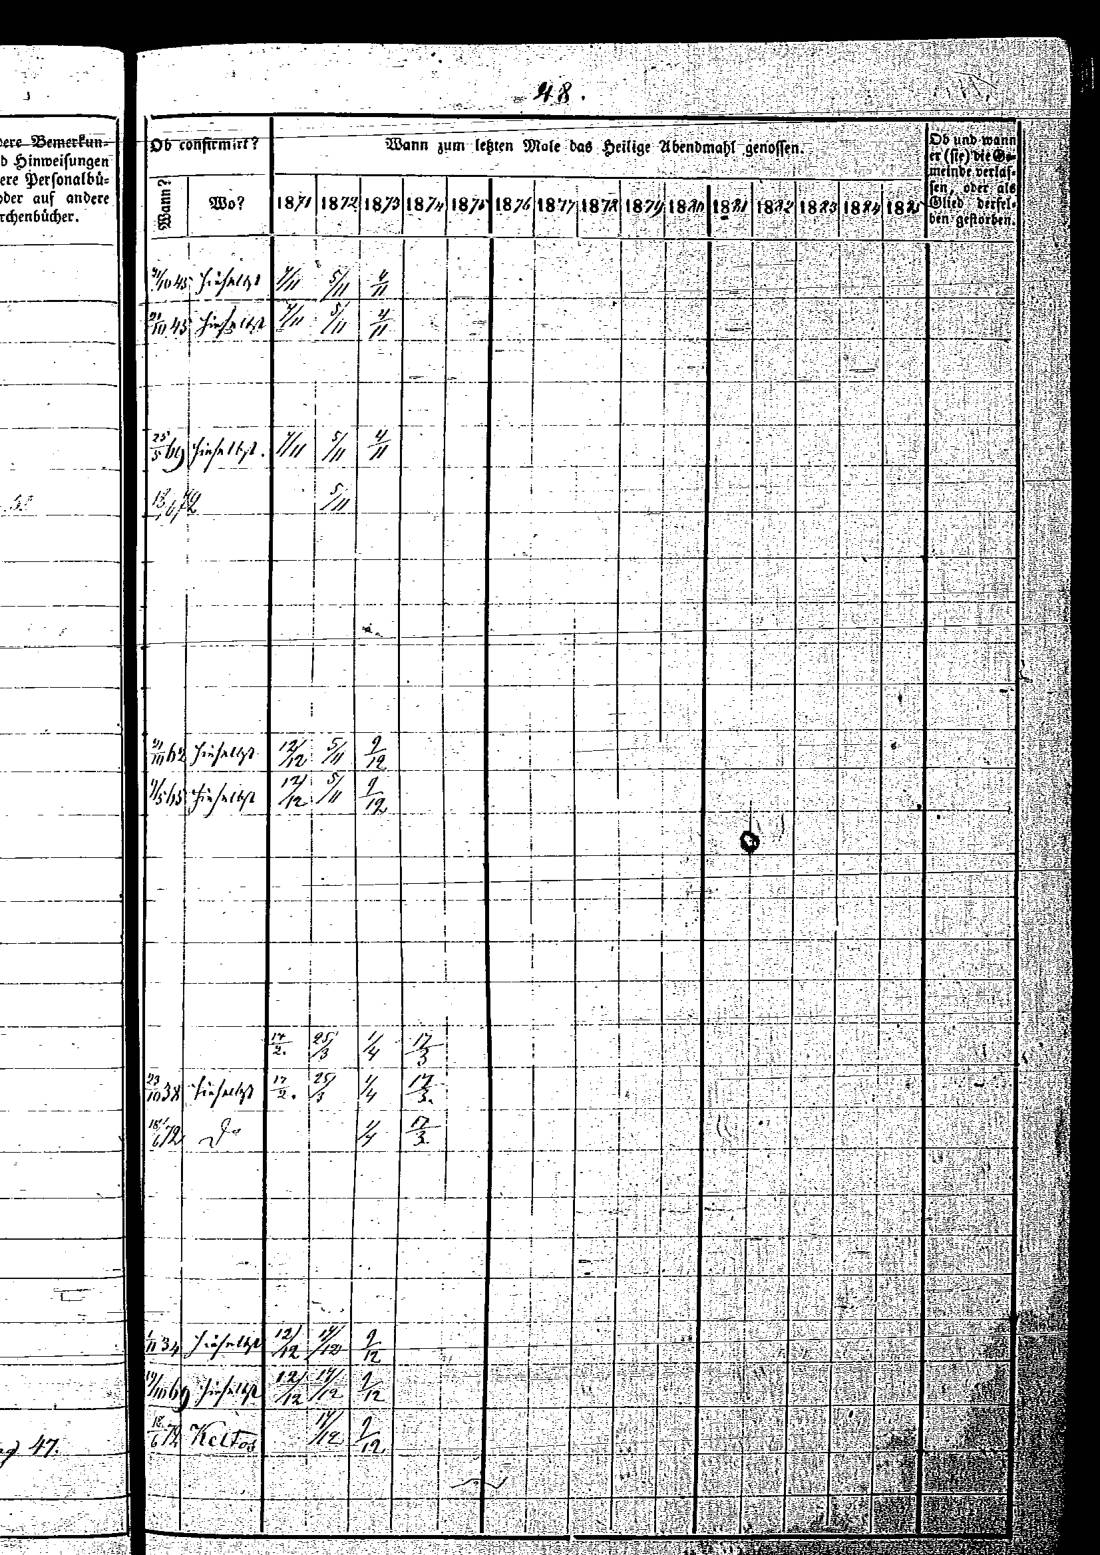 48.
dere Bemerkun-
d Hinweisungen
ere Personalbü-
oder auf andere
rchenbücher.
Ob confirmirt?
Wann zum letzten Male das Heilige Abendmahl genossen.
Ob und wann
er (sie) die Ge-
meinde verlas-
sen, oder als
Glied dersel-
ben gestorben.
Wann? Wo? 1871 1872 1873 1874 1875 1876 1877 1878 1879 1880 1881 1882 1883 1884 1885
21/10 45 hieselbst 7/11 5/11 4/11
21/10 45 hieselbst 7/11 5/11 4/11
25/5 69 hieselbst. 7/11 5/11 4/11
18/6 72 5/11
21/10 62 hieselbst 12/12 5/11 9/12
5 65 hieselbst 12/12 5/11 9/12
17/2. 25/3 1/4 17/3
23/10 38 hieselbst 17/2. 25/3 1/4 17/3.
18/6 72 Do 1/4 17/3.
1/11 34 hieselbst 12/12 17/12 9/12
19/10 69 hieselbst 12/12 17/12 9/12
18/6 72 Keltos 17/12 9/12
47.